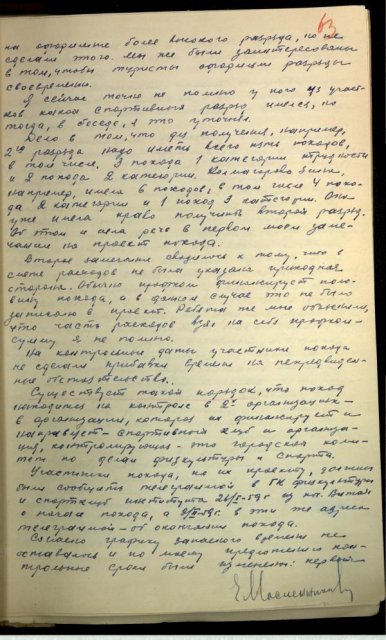 63
на оформление более высокого разряда, но не
сделали этого. Мы же были заинтересованы
в том, чтобы туристы оформляли разряды
своевременно.
Я сейчас точно не помню у кого из участ-
ков какой спортивный разряд имелся, но
тогда, в беседе, я это уточнял.
Дело в том, что для получения, например,
2го разряда надо иметь всего пять походов,
в том числе, 3 похода 1 категории трудности
и 2 похода 2 категории. Колмогорова Зина,
например, имела 6 походов, в том числе 4 похо-
да 2 категории и 1 поход 3 категории. Она
уже имела право получить второй разряд.
Об этом и шла речь в первом моем заме-
чании на проект похода.
Второе замечание сводилось к тому, что в
смете расходов не была указана приходная
сторона. Обычно профком финансирует поло-
вину похода, а в данном случае это не было
записано в проект. Ребята же мне объяснили,
что часть расходов взял на себя профком -
сумму я не помню.
На контрольные даты участники похода
не сделали прибавки времени на непредвиден-
ные обстоятельства.
Существует такой порядок, что поход
находится на контроле в 2х организациях -
в организации, которая их финансирует и
направляет - спортивный клуб и организа-
ция, контролирующая - это городской коми-
тет по делам физкультуры и спорта.
Участники похода, по их проекту, должны
были сообщить телеграммой в ГК физкультуры
и спортклуб института из пос. Вижай
о начале похода, а в эти же адреса
телеграммой - об окончании похода.
Согласно графику запасного времени не
оставалось и по моему предложению кон-
трольные сроки были изменены: первый
Е. Масленников